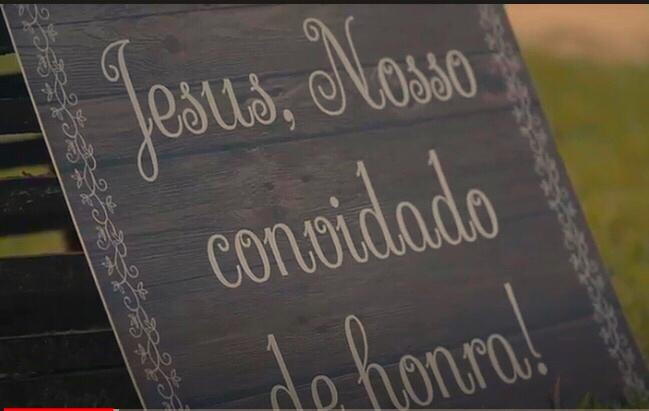 Jesus, Nosso
convidado
de honra!